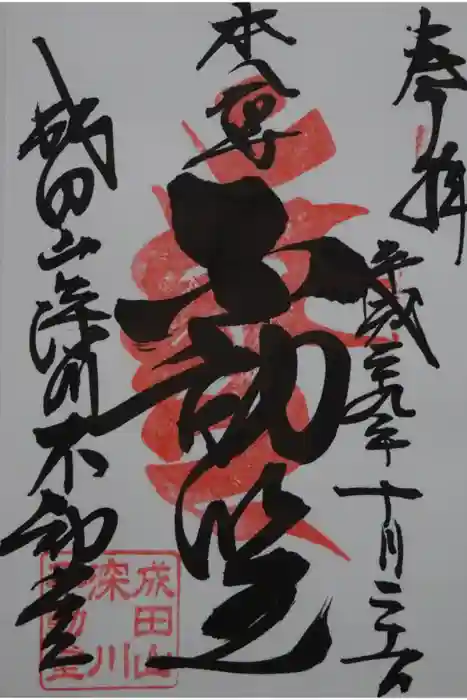 奉拝
平成二九年十月
本尊
不動明王
成田山深川不動堂
成田山
深川
不動堂